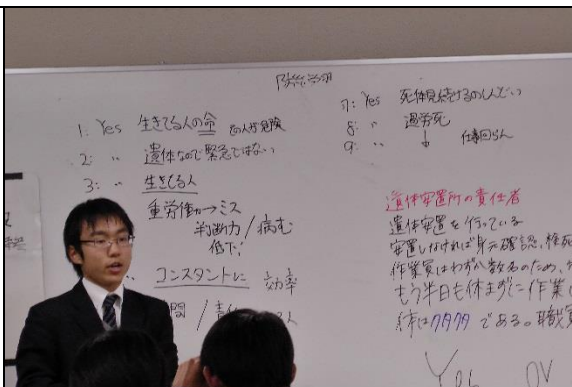 防災学習
1: Yes 生きてる人の命
2: 〃 遺体なので緊急ではない
3: 〃 生きてる人
重労働→ミス
判断力 / 病む
低下
コンスタントに 効率
7: Yes 死体見続けるのしんどい
8: 〃 過労死
9: 〃 ↓ 仕事回らん
遺体安置所の責任者
遺体安置を行っている
安置しなければ身元確認、検死
作業員はわずか数名のため、
もう半日も休まずに作業
体はクタクタである。職員
Yes or